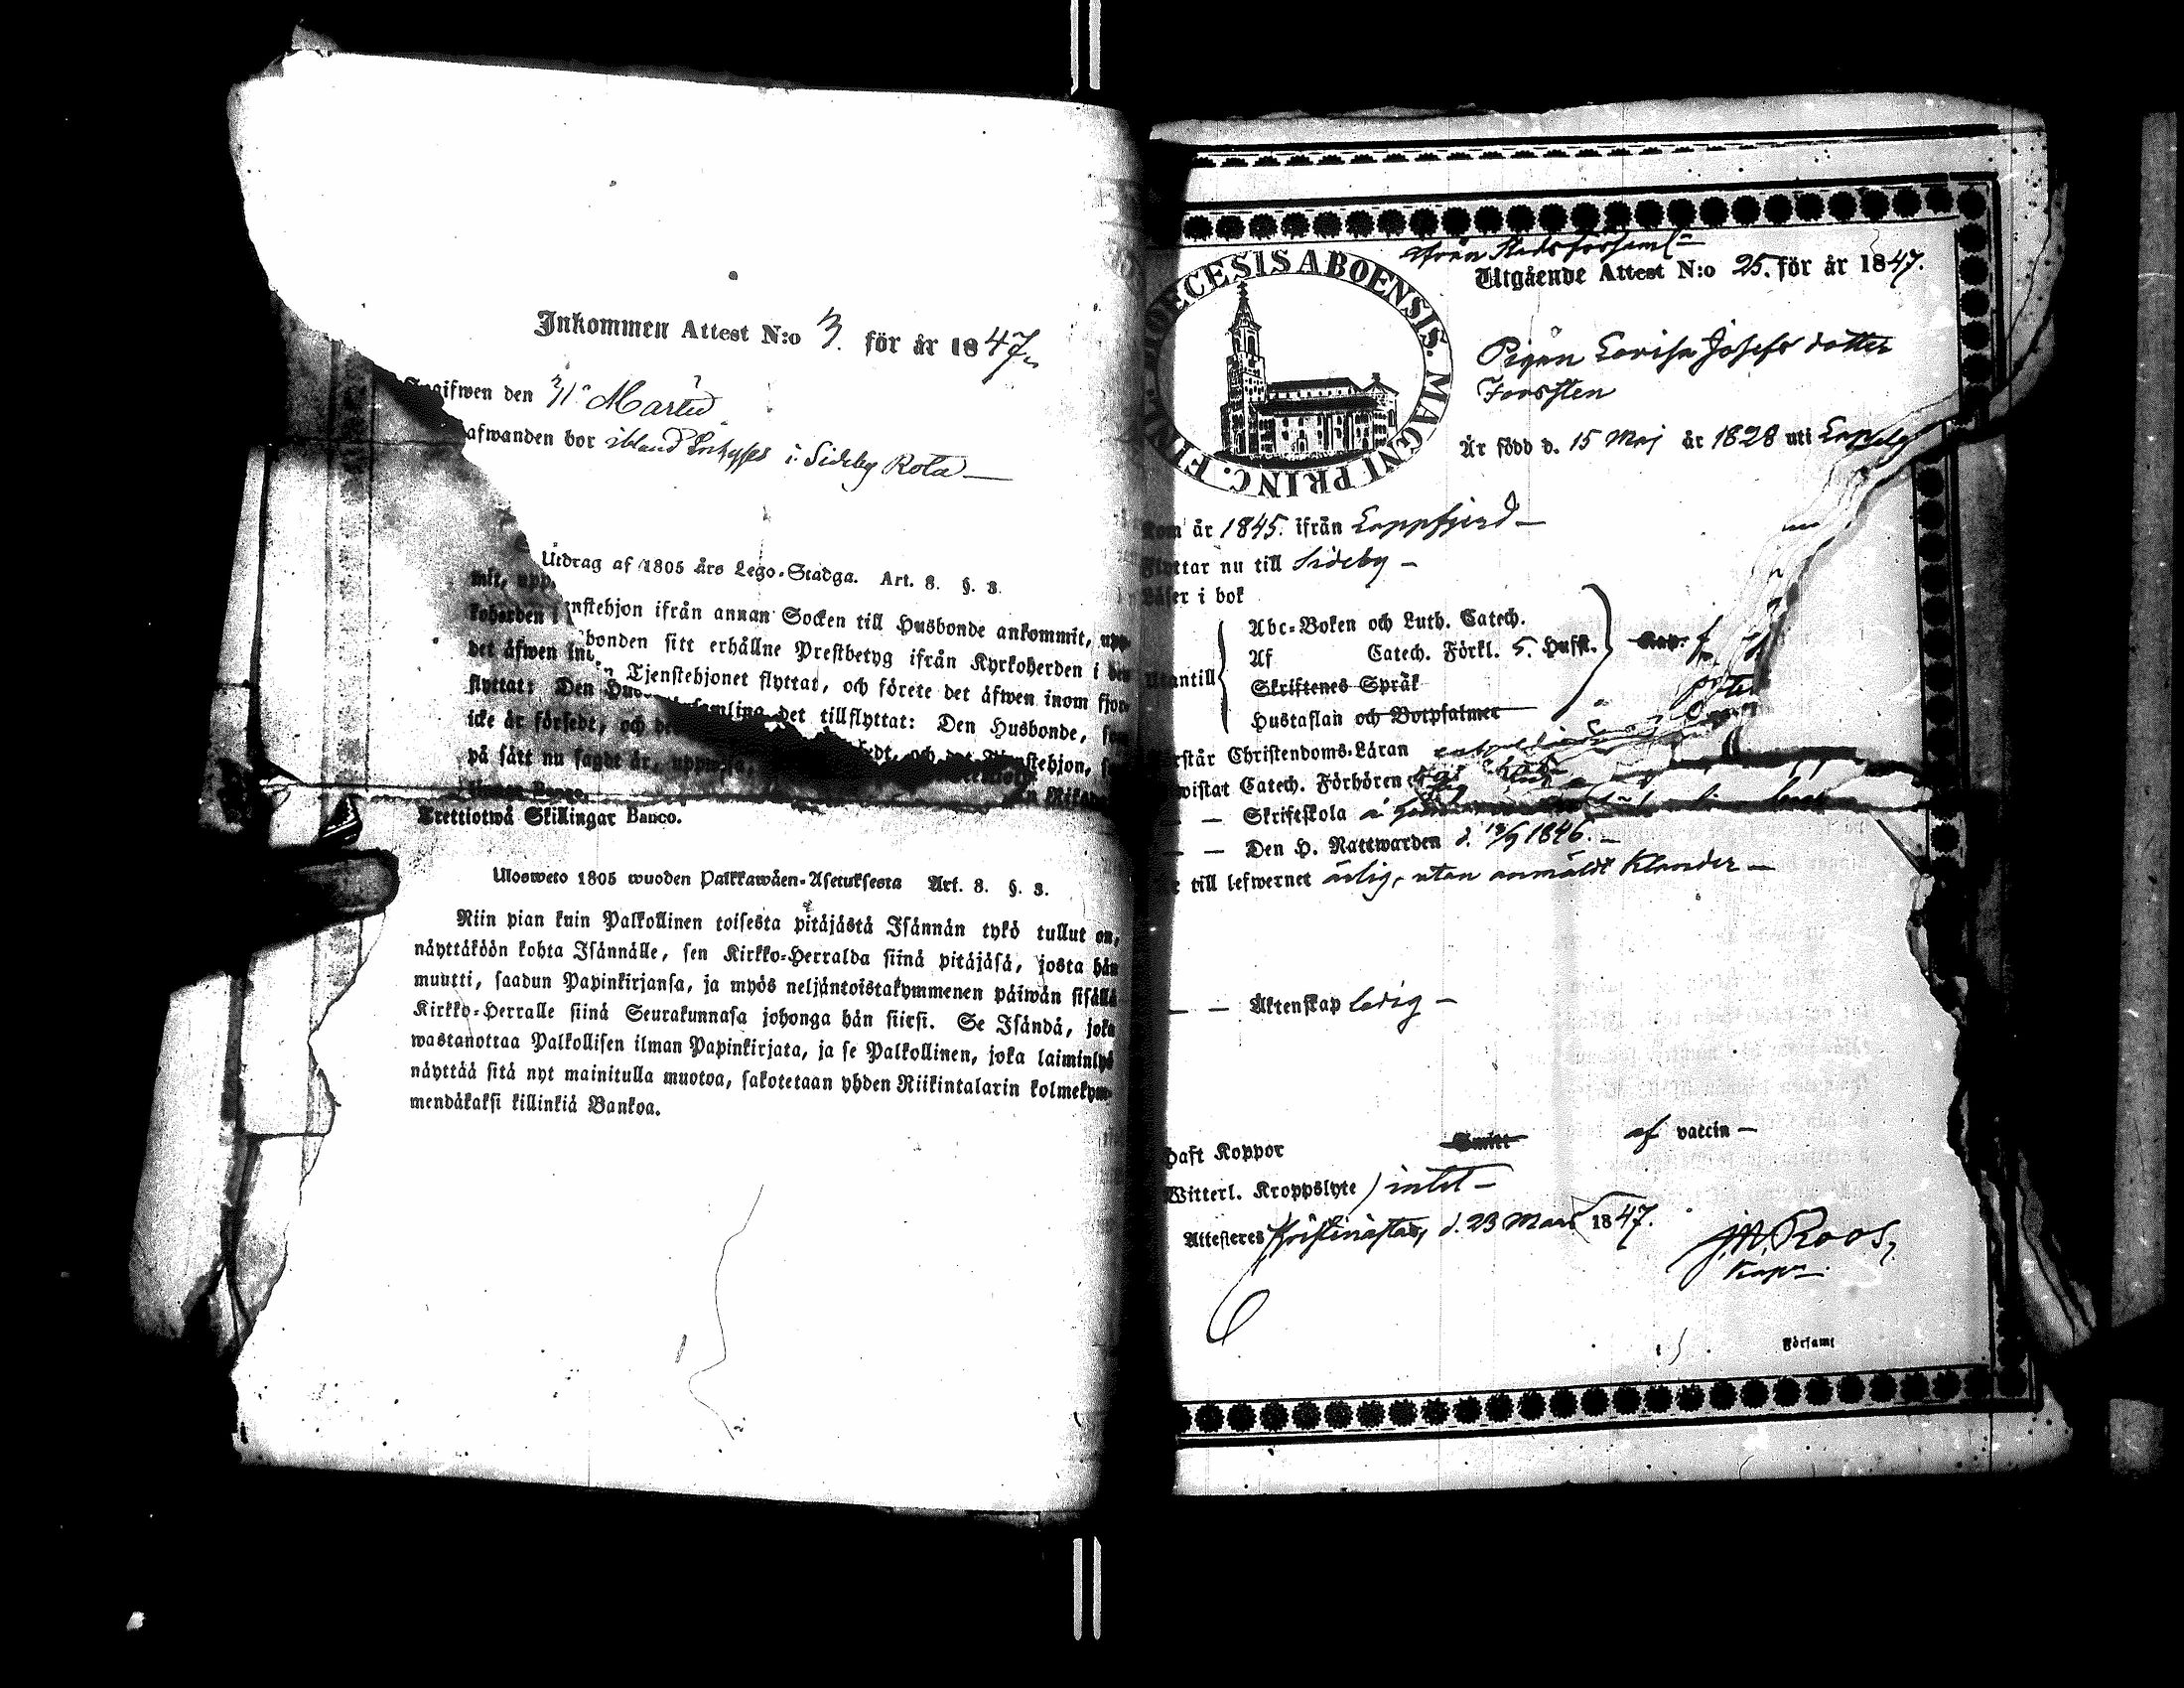 Inkommen Attest N:o 3. för år 1847.
gifwen den 31 Martii
afwanden bor ibland i Sideby Rota
Utdrag af 1805 års Lego-Stadga. Art. 8. §. 3.
nstehjon ifrån annan Socken till Husbonde ankommit, upp-
bonden sitt erhållne Prestbetyg ifrån Kyrkoherden i den
Tjenstehjonet flyttat, och förete det äfwen inom fjor-
samling det tillflyttat: Den Husbonde, som
mit, upp
koherden i
det äfwen in
flyttat: Den Hus
icke är försedt, och de
på sätt nu sagdt är, uppwisa,
Trettiotwå Skillingar Banco.
Ulosweto 1805 wuoden Palkkawäen-Asetuksesta Art. 8. §. 3.
Niin pian kuin Palkollinen toisesta pitäjästä Isännän tykö tullut on,
näyttäköön kohta Isännälle, sen Kirkko-Herralda siinä pitäjäsä, josta hän
muutti, saadun Papinkirjansa, ja myös neljäntoistakymmenen päiwän sisällä
Kirkko-Herralle siinä Seurakunnasa johonga hän siirsi. Se Isändä, joka
wastanottaa Palkollisen ilman Papinkirjata, ja se Palkollinen, joka laiminlyö
näyttää sitä nyt mainitulla muotoa, sakotetaan yhden Riikintalarin kolmekym-
mendäkaksi killinkiä Bankoa.
DIOECESIS ABOENSIS. MAGNI PRINC. FINL.
ifrån Stadsförsaml
Utgående Attest N:o 25. för år 1847.
Pigan Lovisa Josefsdotter
Forsten
Är född d. 15 Maj år 1828 uti
Kom år 1845. ifrån Lappfjerd
Flyttar nu till Sideby
Läser i bok
Abc-Boken och Luth. Catech.
Af Catech. Förkl. 5. Hufst.
Utantill
Skriftenes Språk
Hustaflan och Botpsalmer
Förstår Christendoms-Läran
wistat Catech. Förhören
— — Skriftskola
— — Den H. Nattwarden d. 13/9 1846.
till lefwernet ärlig, utan anmäldt klander
— — Äktenskap ledig
Haft Koppor Smitt af vaccin
Witterl. Kroppslyte intet
Attesteres Kristinastad, d. 23 Mars 1847.
J. M. Roos,
Kapn
Församl